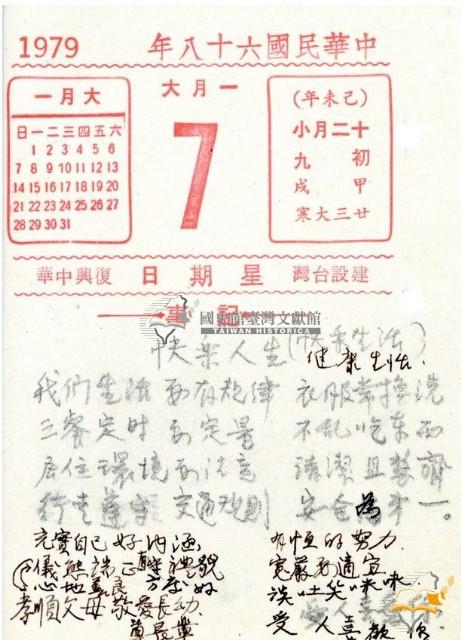 1979 年八十六國民華中
一月大
大月一
日一二三四五六
1 2 3 4 5 6
7 8 9 10 11 12 13
14 15 16 17 18 19 20
21 22 23 24 25 26 27
28 29 30 31
7
(年未己)
小月二十
初九
甲戌
寒大三廿
華中興復 日期星 灣台設建
記事
國史館臺灣文獻館
TAIWAN HISTORICA
快樂人生(快樂生活)
健康生活.
我們生活要有規律 衣服常換洗
三餐定時要定量 不乱吃东西
居住環境要注意 清潔且整齊
行走遵守交通規則 安全為第一。
充實自己好內涵 有恒的努力.
儀態端正有禮貌 寬嚴要適宜
心地善良 談吐笑咪咪
孝順父母敬愛長幼 受人喜歡